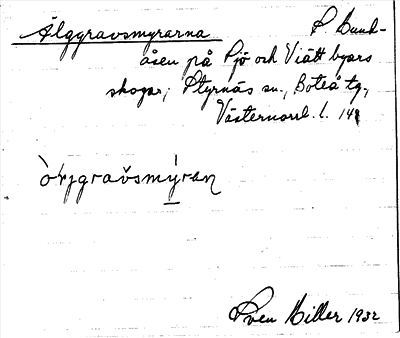 Älggravsmyrarna P. Sund-
åsen på Sjö och Viätt byars
skogar, Styrnäs sn., Boteå tg.,
Västernorrl. l. 141
òrjgravsmýran
Sven Hiller 1932